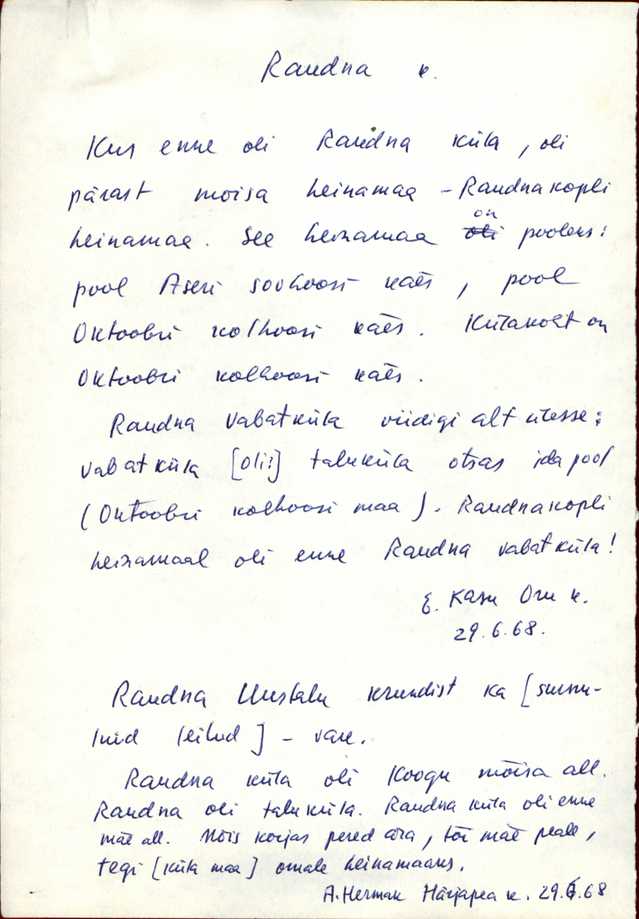 Raudna k.
Kus enne oli Raudna küla, oli
pärast mõisa heinamaa – Raudnakopli
heinamaa. See heinamaa oli on pooleks:
pool Aseri sovhoosi käes, pool
Oktoobri kolhoosi käes. Külakoht on
Oktoobri kolhoosi käes.
Raudna vabatküla viidigi alt ülesse;
vabatküla [oli?] taluküla otsas idapool
(Oktoobri kolhoosi maa). Raudnakopli
heinamaal oli enne Raudna vabatküla!
E. Kasu Oru k.
29.6.68.
Raudna Uustalu krundist ka [surnu-
luid leitud] – vare.
Raudna küla oli Koogu mõisa all.
Raudna oli taluküla. Raudna küla oli enne
mäe all. Mõis korjas pered ära, tõi mäe peale,
tegi [küla maa] omale heinamaaks.
A. Herman Härjapea k. 29.6.68